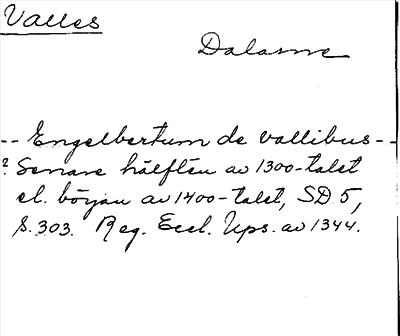 Valles
Dalarne
-- Engelbertum de Vallibus --
? Senare hälften av 1300-talet
el. början av 1400-talet, SD 5,
s. 303. Reg. Eccl. Ups. av 1344.